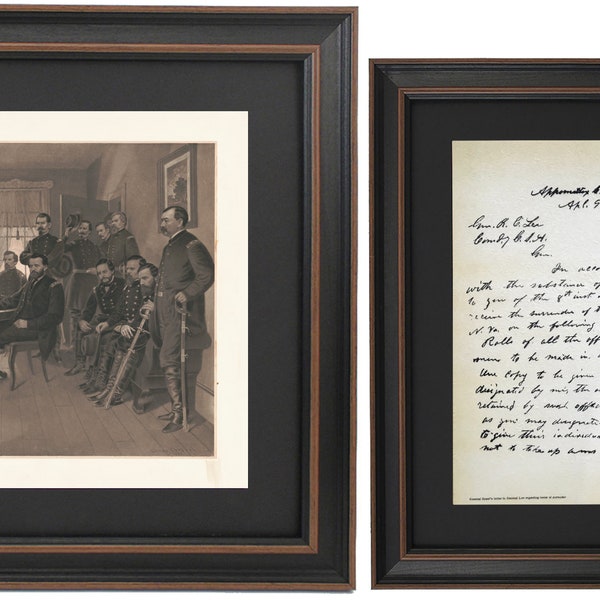 Appomattox C.
Apl. 9
Gen. R. E. Lee
Comdg C.S.A.
Gen.
In acco
with the substance of
to you of the 8th inst
receive the surrender of the
N. Va. on the following
Rolls of all the off
men to be made in
One copy to be given
designated by me, the o
retained by such officer
as you may designate
to give their individual
not to take up arms
General Grant's letter to General Lee regarding terms of surrender